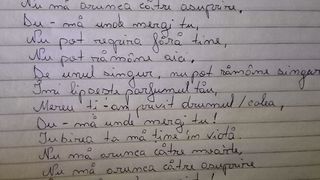 Nu mă arunca către asuprire,
Du-mă unde mergi tu,
Nu pot respira fără tine,
Nu pot rămâne aia,
De unul singur, nu pot rămâne singur
Îmi lipsește parfumul tău,
Mereu ți-am privit drumul/calea,
Du-mă unde mergi tu!
Iubirea ta mă ține în viață.
Nu mă arunca către moarte,
Nu mă arunca către asuprire